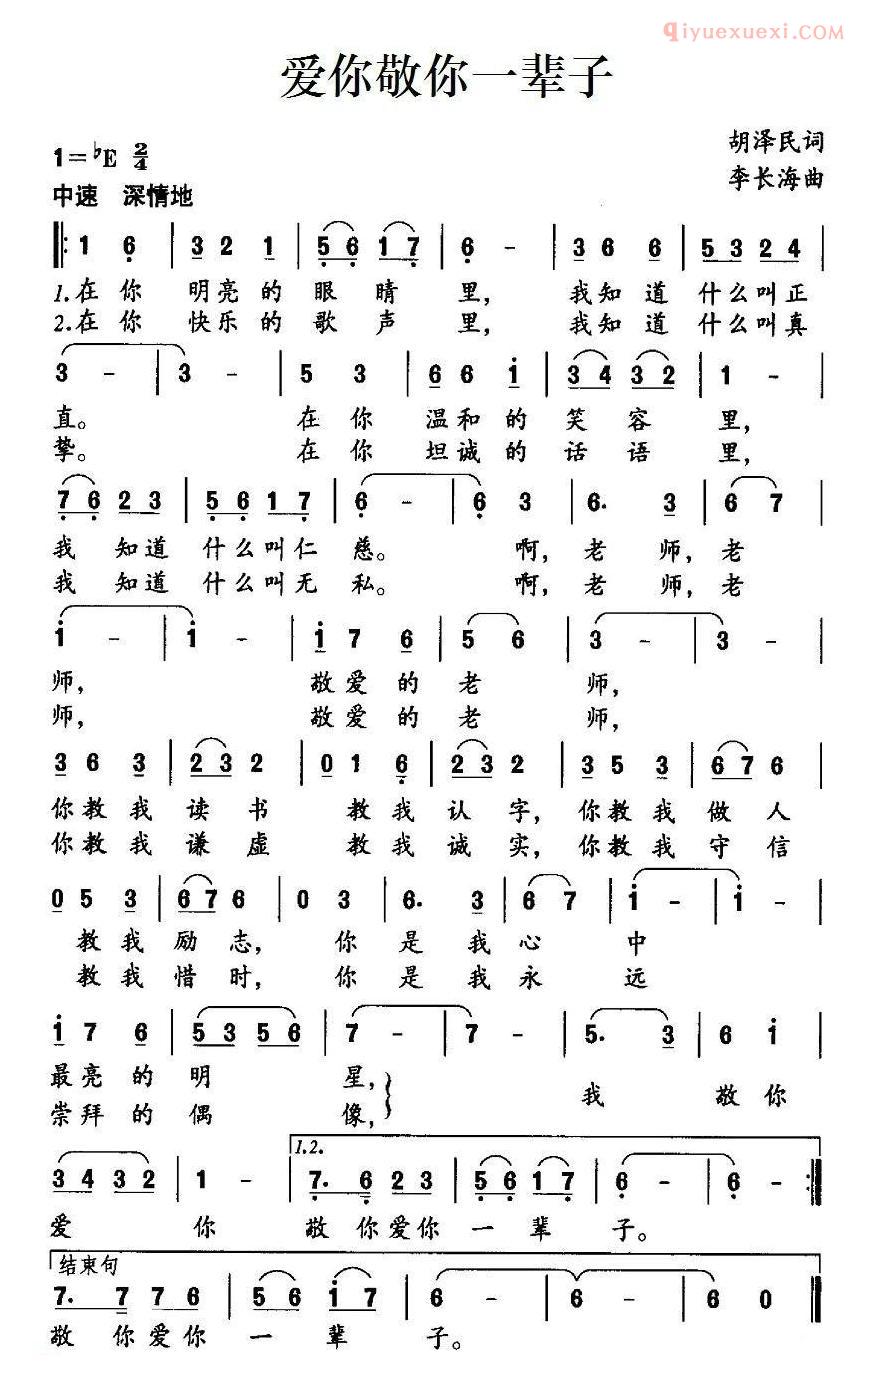 qiyuexuexi.COM
爱你敬你一辈子
1=♭E 2/4
胡泽民词
中速 深情地
李长海曲
‖: 1 6̣ | 3 2 1 | 5̣ 6̣ 1 7̣ | 6̣ - | 3 6 6 | 5 3 2 4 |
1.在 你 明亮的眼睛里，我知道什么叫正
2.在 你 快乐的歌声里，我知道什么叫真
3 - | 3 - | 5 3 | 6 6 i | 3 4 3 2 | 1 - |
直。 在你温和的笑容里，
挚。 在你坦诚的话语里，
7̣ 6̣ 2 3 | 5̣ 6̣ 1 7̣ | 6̣ - | 6̣ 3 | 6. 3 | 6 7 |
我 知道 什么叫仁 慈。 啊，老 师，老
我 知道 什么叫无 私。 啊，老 师，老
i - | i - | i 7 6 | 5 6 | 3 - | 3 - |
师， 敬爱的老 师，
师， 敬爱的老 师，
3 6 3 | 2 3 2 | 0 1 6̣ | 2 3 2 | 3 5 3 | 6 7 6 |
你教我 读书 教我 认字，你教我 做人
你教我 谦虚 教我 诚实，你教我 守信
0 5 3 | 6 7 6 | 0 3 | 6. 3 | 6 7 | i - | i - |
教我 励志， 你 是 我 心 中
教我 惜时， 你 是 我 永 远
i 7 6 | 5 3 5 6 | 7 - | 7 - | 5. 3 | 6 i |
最亮的 明 星，
崇拜的 偶 像，
我 敬你
1.2.
3 4 3 2 | 1 - | 7̣. 6̣ 2 3 | 5̣ 6̣ 1 7̣ | 6̣ - | 6̣ - :‖
爱 你 敬 你爱你 一 辈 子。
结束句
7. 7 7 6 | 5 6 i 7 | 6 - | 6 - | 6 0 ‖
敬 你爱你 一 辈 子。